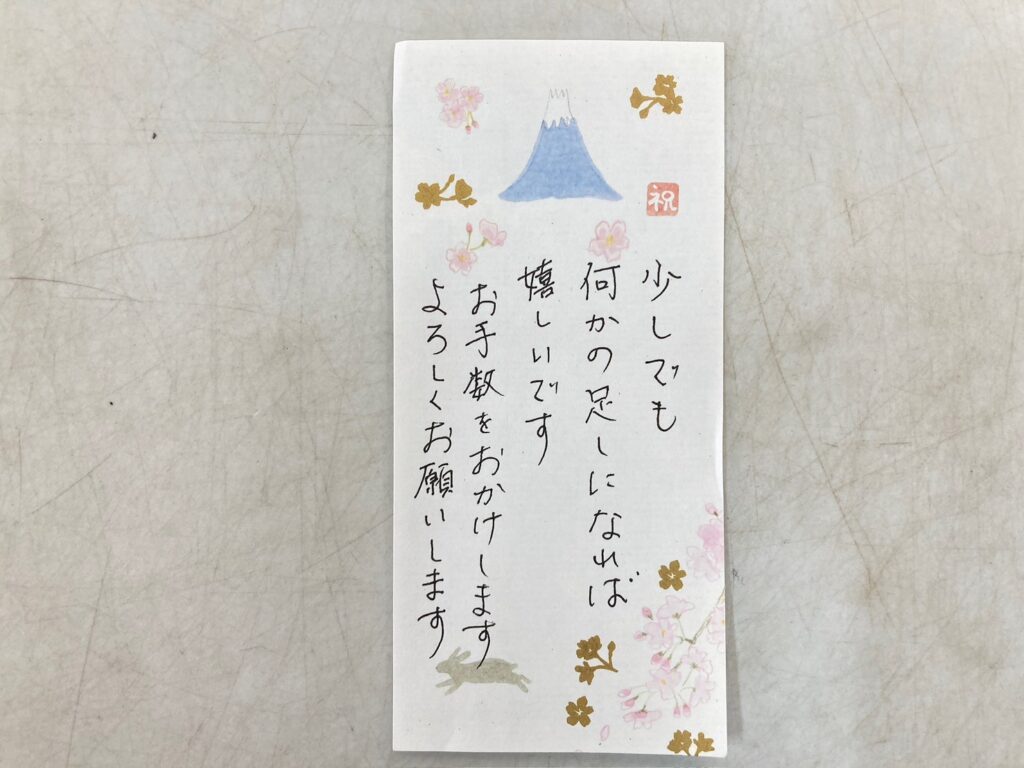 祝
少しでも
何かの足しになれば
嬉しいです
お手数をおかけします
よろしくお願いします